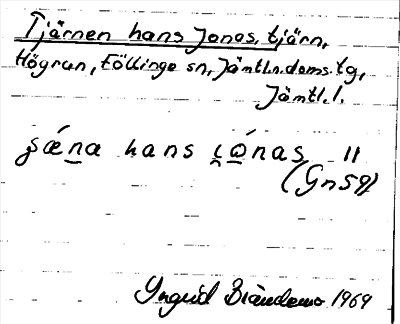 Tjärnen hans Jonas, tjärn,
Högrun, Föllinge sn, Jämtl.n.doms.tg,
Jämtl.l.
hans ı̯ó̱nas 11
(Gn59)
Yngrid Brändemo 1969